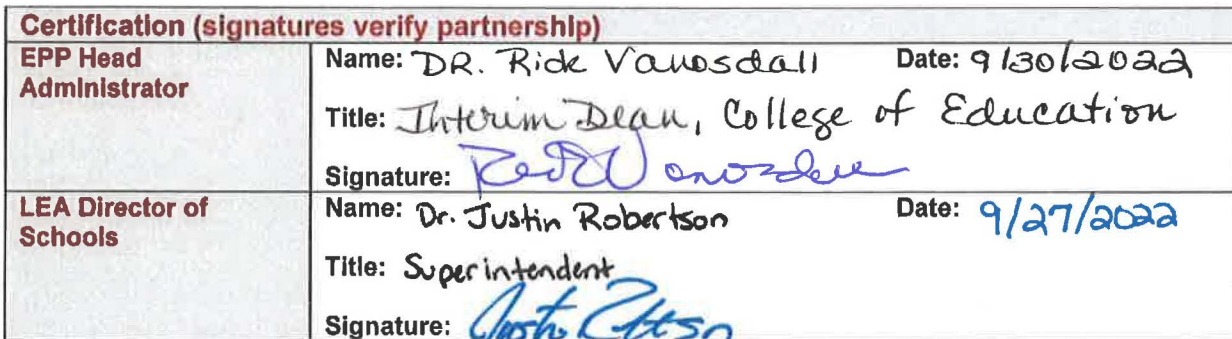 Certification (signatures verify partnership)
EPP Head Administrator
Name: DR. Rick Vanosdall Date: 9/30/2022
Title: Interim Dean, College of Education
Signature:
LEA Director of Schools
Name: Dr. Justin Robertson Date: 9/27/2022
Title: Superintendent
Signature: